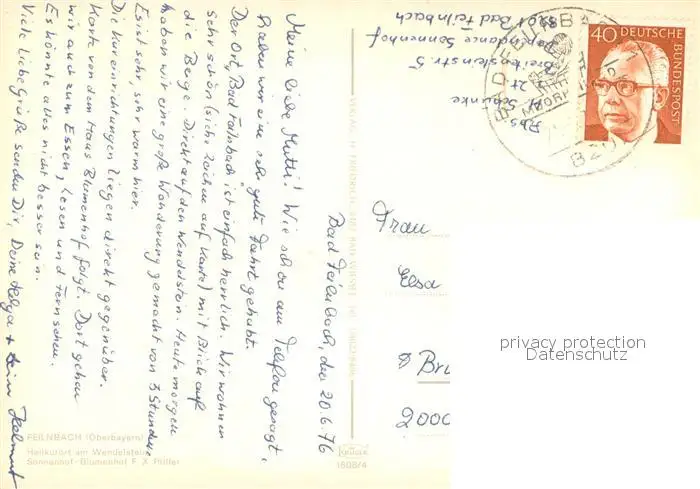 Bad Feilnbach, den 20.6.76
Meine liebe Mutti! Wie schon am Telefon gesagt,
haben wir eine sehr gute Fahrt gehabt.
Der Ort, Bad Failnbach ist einfach herrlich. Wir wohnen
sehr schön (siehe Zeichen auf Karte) mit Blick auf
die Berge. Direkt auf den Wendelstein. Heute morgen
haben wir eine große Wanderung gemacht von 3 Stunden
Es ist sehr, sehr warm hier.
Die Kureinrichtungen liegen direkt gegenüber.
Karte von dem Haus Blumenhof folgt. Dort gehen
wir auch zum Essen, lesen und Fernsehen.
Es könnte alles nicht besser sein.
Viele liebe Grüße senden Dir, Deine Helga + Dein Helmut
FEILNBACH (Oberbayern)
Heilkurort am Wendelstein
Sonnenhof-Blumenhof F. X.
KRÜGER
1508/4
Abs
Schünke
zt
Breitensteinstr. 5
Sonnenhof
8201 Bad Feilnbach
BAD FEILNBACH
820
40 DEUTSCHE
BUNDESPOST
Frau
Elsa
Bru
2000
privacy protection
Datenschutz